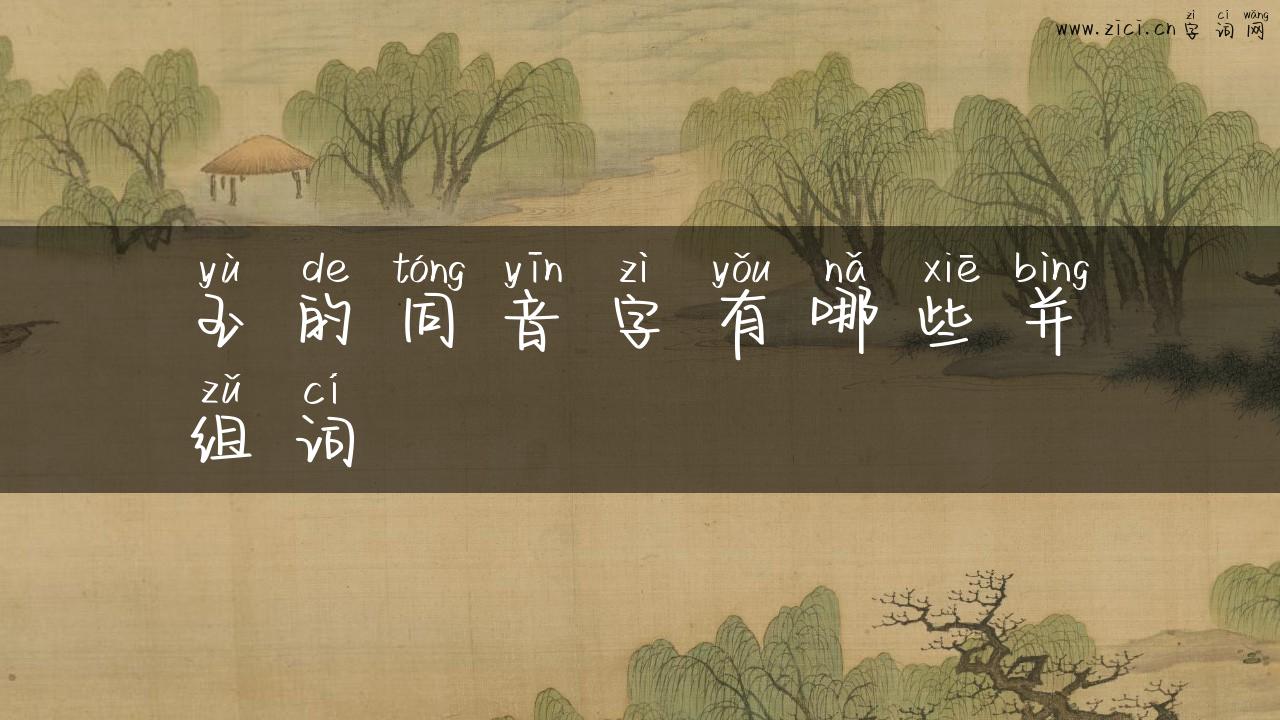 zì cí wǎng
www.zici.cn 字 词 网
yù de tóng yīn zì yǒu nǎ xiē bìng
玉 的 同 音 字 有 哪 些 并
zǔ cí
组 词